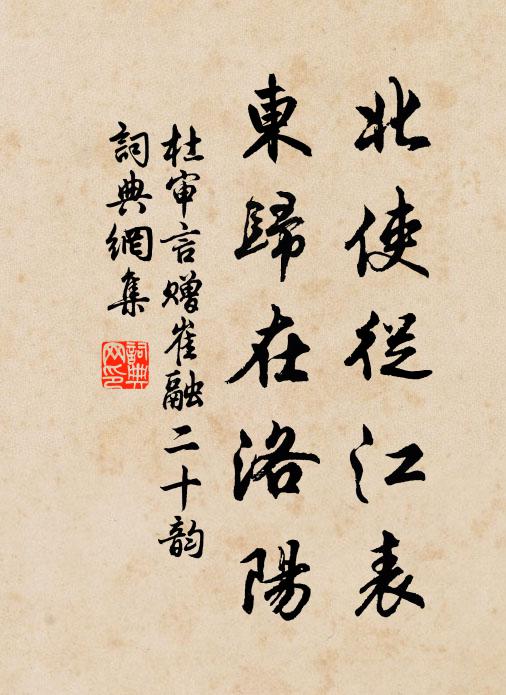 北使從江表
東歸在洛陽
杜审言赠崔融二十韵
詞典網集
詞典網印